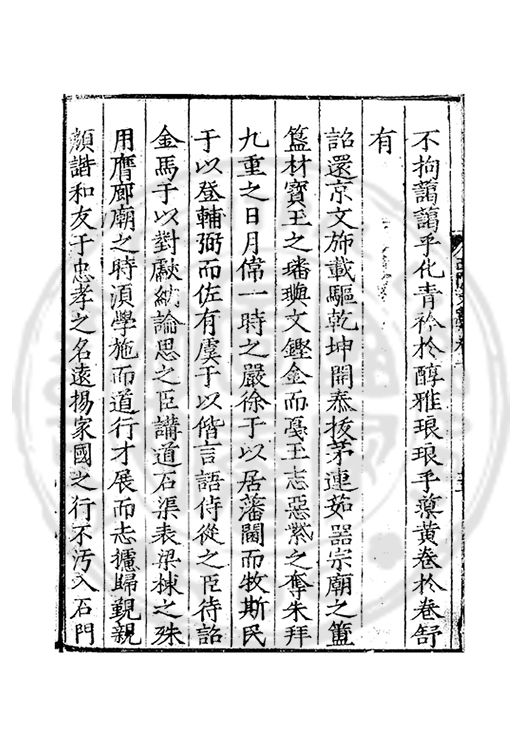 不拘藹藹乎化青衿於醇雅琅琅乎藁黃卷於卷舒
有
詔還京文斾載驅乾坤開泰拔茅連茹器宗廟之簠
簋材寶玉之璠璵文鏗金而戞玉志惡紫之奪朱拜
九重之日月偉一時之嚴徐于以居藩閫而牧斯民
于以登輔弼而佐有虞于以偕言語侍從之臣待詔
金馬于以對獻納論思之臣講道石渠表梁棟之殊
用膺廊廟之時湏學施而道行才展而志攄歸覲親
顏諧和友于忠孝之名遠揚家國之行不污入石門